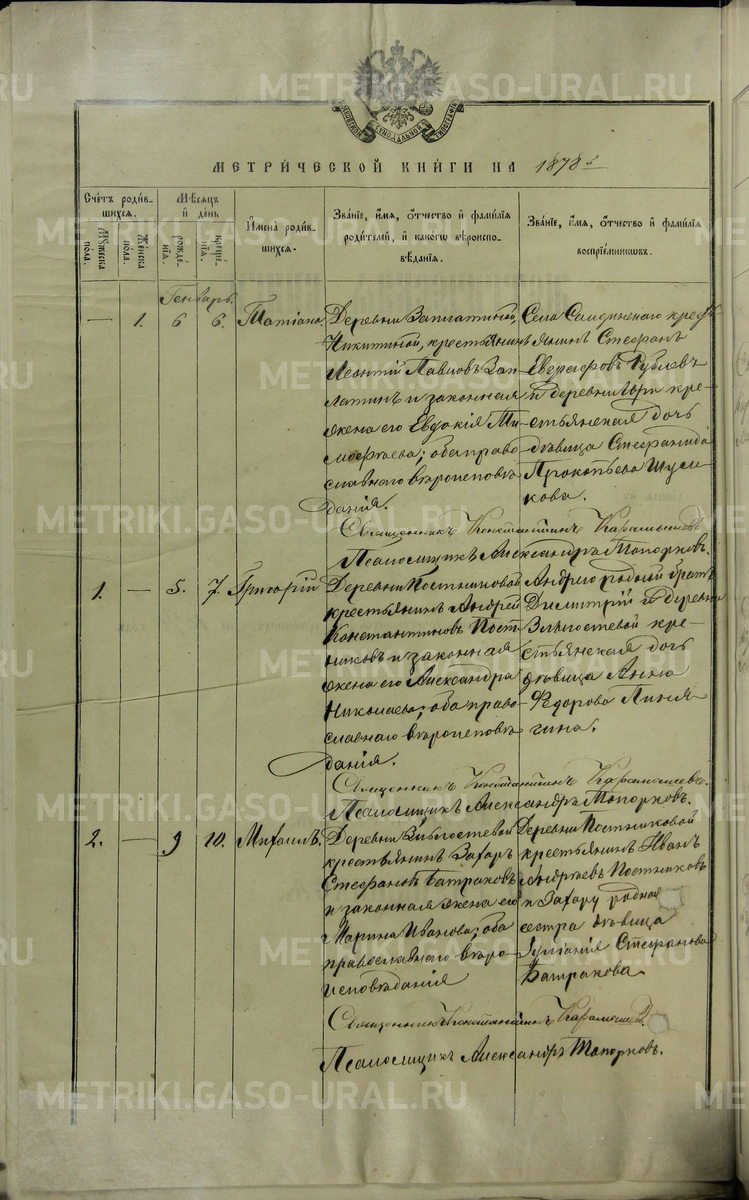 МЕТРИ́ЧЕСКОЙ КНИ́ГИ НА 1878 й
Сче́тъ роди́в-
шихся.
Му́жеска по́ла.
Же́нска по́ла.
Мѣ́сяцъ
и҆ де́нь
рожде́-
нїя.
креще́-
нїя.
И҆мена̀ роди́в-
шихся.
Зва́нїе, и҆́мя, ѻ҆́тчество и҆ фами́лїя
роди́телей, и҆ како́гѡ вѣ́роиспо-
вѣ́данїя.
Зва́нїе, и҆́мя, ѻ҆́тчество и҆ фами́лїя
воспрїе́мниковъ.
Генварь.
— 1. 6 6. Татіана
Деревни Заплатиной,
Никитиной, крестьянинъ
Леонтій Павловъ Зап-
латинъ и законная
жена его Евдокія Ти-
моѳеева; оба право-
славнаго вѣроисповѣ-
данія.
Села
Стефанъ
и деревни
кре-
стьянская дочь
дѣвица Стефанида
Прокопьева
кова.
Священникъ Константинъ
Псаломщикъ Александръ Топорковъ.
1. — 5. 7. Григорій
Деревни Постниковой
крестьянинъ Андрей
Константиновъ Пост-
никовъ и законная
жена его Александра
Николаева; оба право-
славнаго вѣроисповѣ-
данія.
Андрею родной братъ
Димитрій и деревни
кре-
стьянская дочь
дѣвица Анна
Ѳедорова Линя-
гина.
Священникъ Константинъ
Псаломщикъ Александръ Топорковъ.
2. — 9 10. Михаилъ.
Деревни
крестьянинъ Захаръ
Стефановъ Батраковъ
и законная жена его
Марина Иванова; оба
православнаго вѣро-
исповѣданія
Деревни Постниковой
крестьянинъ Иванъ
Андреевъ Постниковъ
и Захару родная
сестра дѣвица
Стефанова
Батракова.
Священникъ Константинъ
Псаломщикъ Александръ Топорковъ.
METRIKI.GASO-URAL.RU